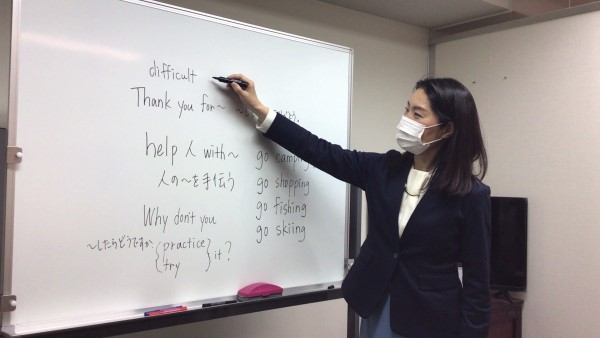 difficult
Thank you for～
help 人 with～
人の～を手伝う
go camping
go shopping
go fishing
go skiing
Why don't you
～したらどうですか
{practice
try} it?